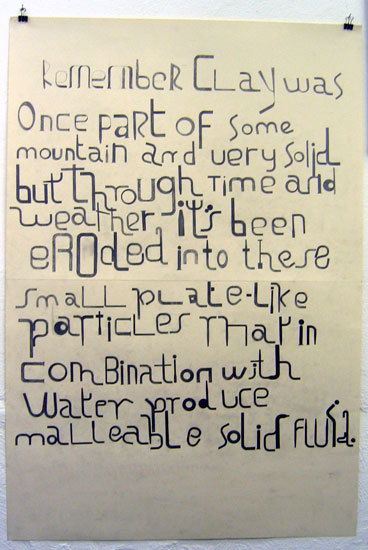 Remember Clay was
Once part of some
mountain and very solid
but through Time and
weather, it's been
eroded into these
small plate-like
particles That in
combination with
Water produce
malleable solid fluid.